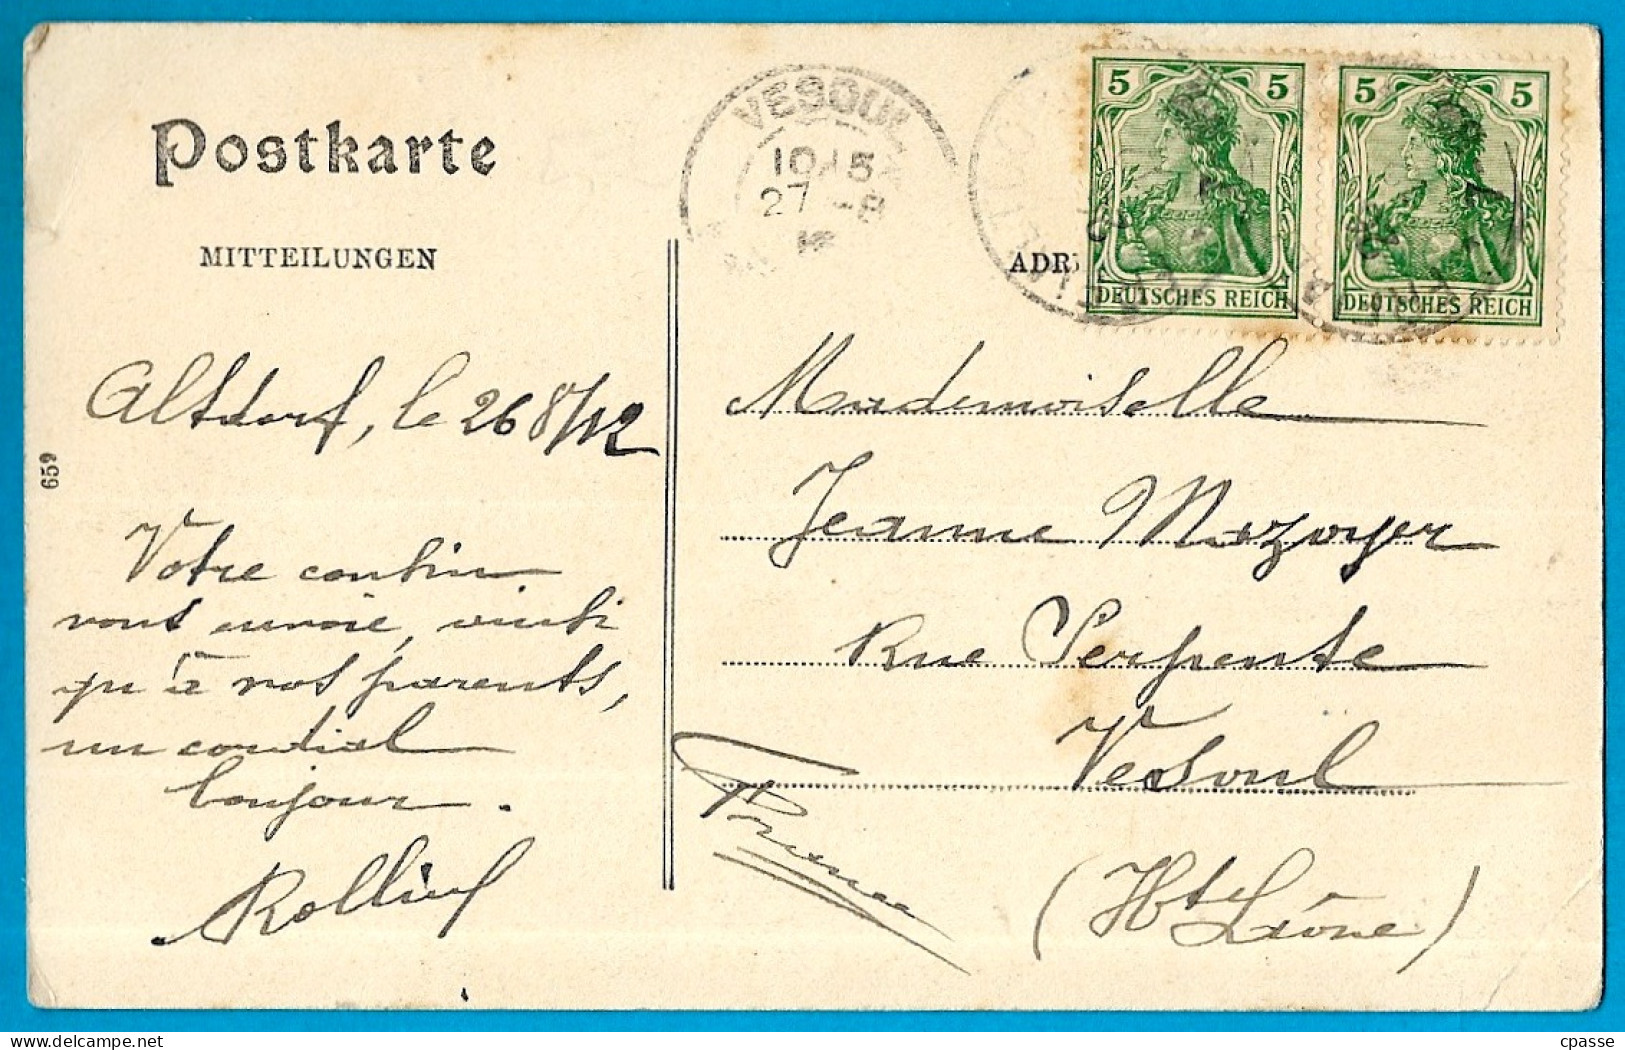 Postkarte
MITTEILUNGEN
ADR
VESOUL
10 15
27 -8
5 5
DEUTSCHES REICH
5 5
DEUTSCHES REICH
659
Altdorf, le 26 8/12
Votre cousin
vous envoie, ainsi
qu'à vos parents,
un cordial
bonjour.
Mademoiselle
Jeanne Mazoyer
Rue Serpente
Vesoul
(Hte Saône)
France
cpasse